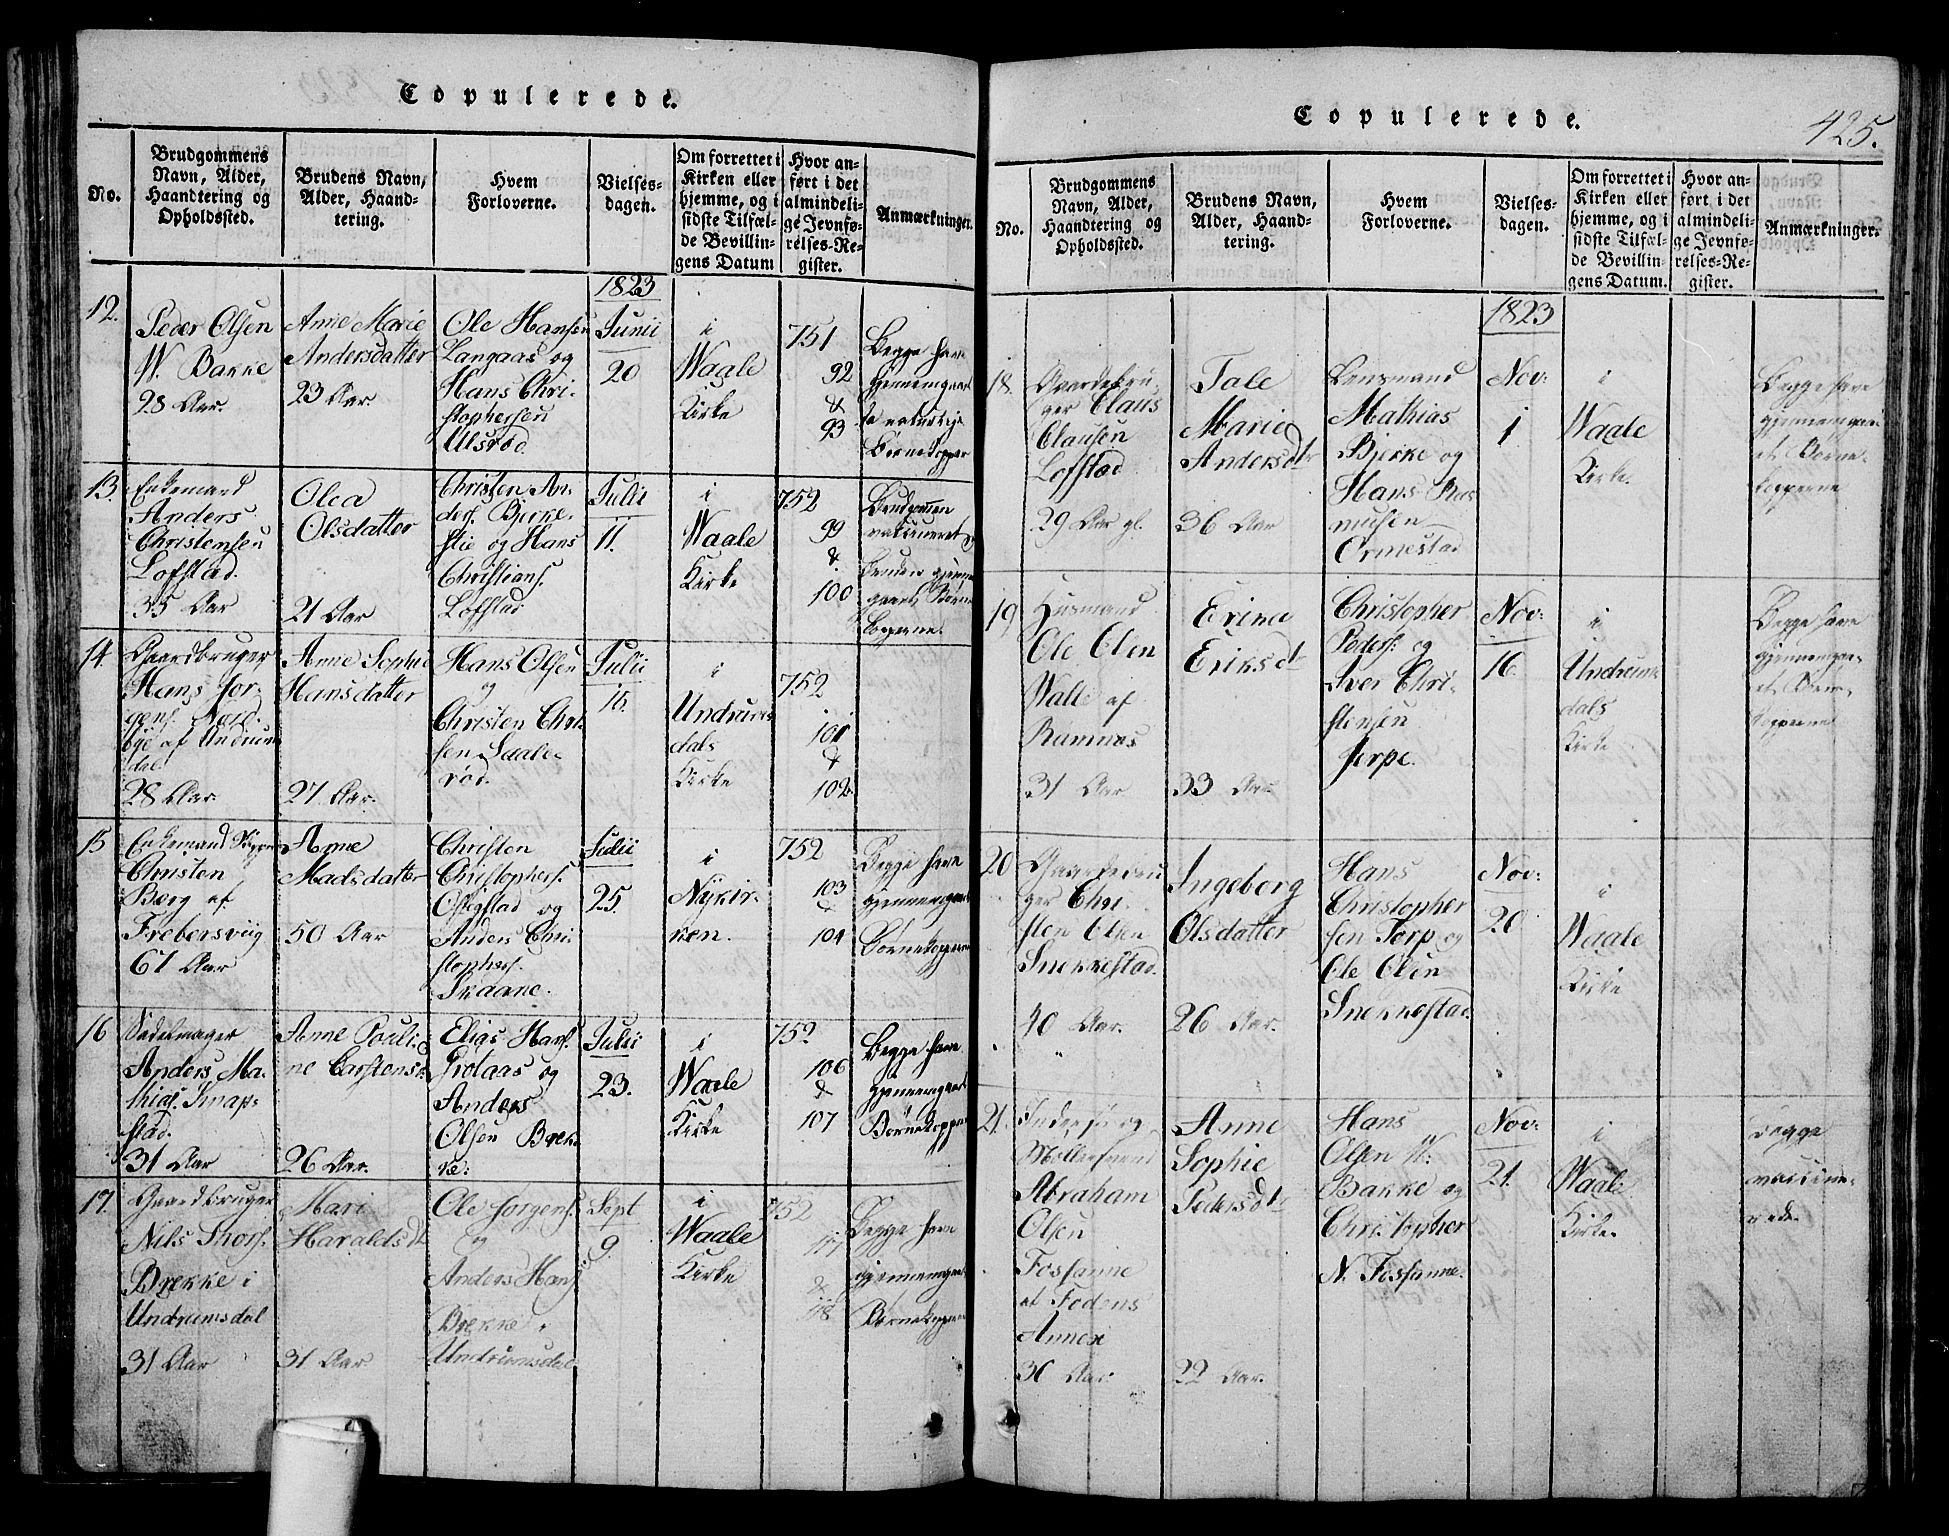 Copulerede.
No.
Brudgommens
Navn, Alder,
Haandtering og
Opholdssted.
Brudens Navn,
Alder, Haand-
tering.
Hvem
Forloverne.
Vielses-
dagen.
Om forrettet i
Kirken eller
hjemme, og i
sidste Tilfæl-
de Bevillin-
gens Datum
Hvor an-
ført i det
almindeli-
ge Jevnfø-
relses-Re-
gister.
Anmærkninger.
1823
12.
Peder Olsen
W. Bakke
28 Aar.
Anne Marie
Andersdatter
23 Aar.
Ole Hansen
Langaas og
Hans Chri-
stophersen
Ulsrød.
Junii
20
i
Waale
Kirke
751
92
&
93
Begge have
gjennemgaae-
te naturlige
Børnekopper
13.
Enkemand
Anders
Christensen
Lofstad.
35 Aar
Olea
Olsdatter
21 Aar
Christen An-
ders. Bjerke-
slie og Hans
Christians.
Lofstad
Julii
11.
i
Waale
Kirke
752
99
&
100
Brudgommen
vaksineret,
Bruden gjennem-
gaaet Børne-
kopperne.
14.
Gaardbruger
Hans Jør-
gens. Nord-
bye af Undrums
dal
28 Aar.
Anne Sophie
Hansdatter
27 Aar.
Hans Olsen
og
Christen Chri
sen Saale-
rød.
Julii
15.
i
Undrums
dals
Kirke
752
101
&
102
15
Enkemand
Christen
Berg af
Frebersviig
67 Aar
Anne
Madsdatter
50 Aar
Christen
Christophers.
Ofigstad og
Anders Chri-
stophers.
Skaane.
Julii
25.
i
Nykir-
ken.
752
103
&
104
Begge have
gjennemgaaet
Børnekopperne
16
Sadelmager
Anders Ma-
thias. Knap-
stad.
31 Aar
Anne Pouli-
ne Carstensd.
26 Aar.
Elias Hans.
Grolaas og
Anders
Olsen Brek
ke.
Julii
23.
i
Waale
Kirke
752
106
&
107
Begge have
gjennemgaaet
Børnekopper
17.
Gaardbruger
Nils Thors.
Brekke i
Undrumsdal
31 Aar
Mari
Haraldsdt
31 Aar
Ole Jørgens.
og
Anders Hans.
Brekke i
Undrumsdal
Sept
9.
i
Waale
Kirke
752
117
&
118
Begge have
gjennemgaaet
Børnekopperne
Copulerede.
425.
No.
Brudgommens
Navn, Alder,
Haandtering og
Opholdssted.
Brudens Navn,
Alder, Haand-
tering.
Hvem
Forloverne.
Vielses-
dagen.
Om forrettet i
Kirken eller
hjemme, og i
sidste Tilfæl-
de Bevillin-
gens Datum.
Hvor an-
ført i det
almindeli-
ge Jevnfø-
relses-Re-
gister.
Anmærkninger.
1823
18.
Gaardbru-
ger Claus
Clausen
Lofstad
29 Aar gl.
Tale
Marie
Andersdt
36 Aar
Lensmand
Mathias
Bjerke og
Hans Ras
musen
Ormestad
Nov:
1
i
Waale
Kirke.
Begge have
gjennemgaa-
et Børne-
kopperne
19
Husmand
Ole Olsen
Walle af
Ramnes
31 Aar
Erina
Eriksdt
33 Aar
Christopher
Peders. og
Iver Chri-
stensen
Jerpe.
Nov:
16
i
Undrums
dals
Kirke
Begge have
gjennemgaa-
et Børne-
kopperne
20
Gaardbru
ger Chri-
sten Olsen
Snekkestad.
40 Aar.
Ingeborg
Olsdatter
26 Aar.
Hans
Christopher
sen Torp og
Ole Olsen
Snekkestad.
Nov:
20
i
Waale
Kirke
21.
Inderst og
Møllersvend
Abraham
Olsen
Fossanne
af Fodens
Annex
30 Aar.
Anne
Sophie
Pedersdt
22 Aar.
Hans
Olsen W:
Bakke og
Christopher
N. Fossanne.
Nov:
21.
i
Waale
Kirke.
Begge
vaccine-
rede.